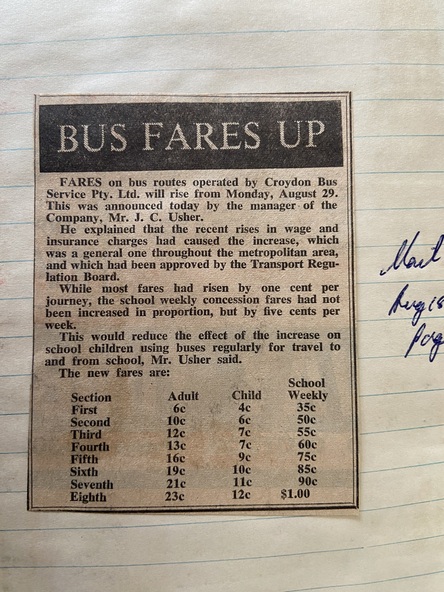 BUS FARES UP
FARES on bus routes operated by Croydon Bus
Service Pty. Ltd. will rise from Monday, August 29.
This was announced today by the manager of the
Company, Mr. J. C. Usher.
He explained that the recent rises in wage and
insurance charges had caused the increase, which
was a general one throughout the metropolitan area,
and which had been approved by the Transport Regu-
lation Board.
While most fares had risen by one cent per
journey, the school weekly concession fares had not
been increased in proportion, but by five cents per
week.
This would reduce the effect of the increase on
school children using buses regularly for travel to
and from school, Mr. Usher said.
The new fares are:
School
Section Adult Child Weekly
First 6c 4c 35c
Second 10c 6c 50c
Third 12c 7c 55c
Fourth 13c 7c 60c
Fifth 16c 9c 75c
Sixth 19c 10c 85c
Seventh 21c 11c 90c
Eighth 23c 12c $1.00